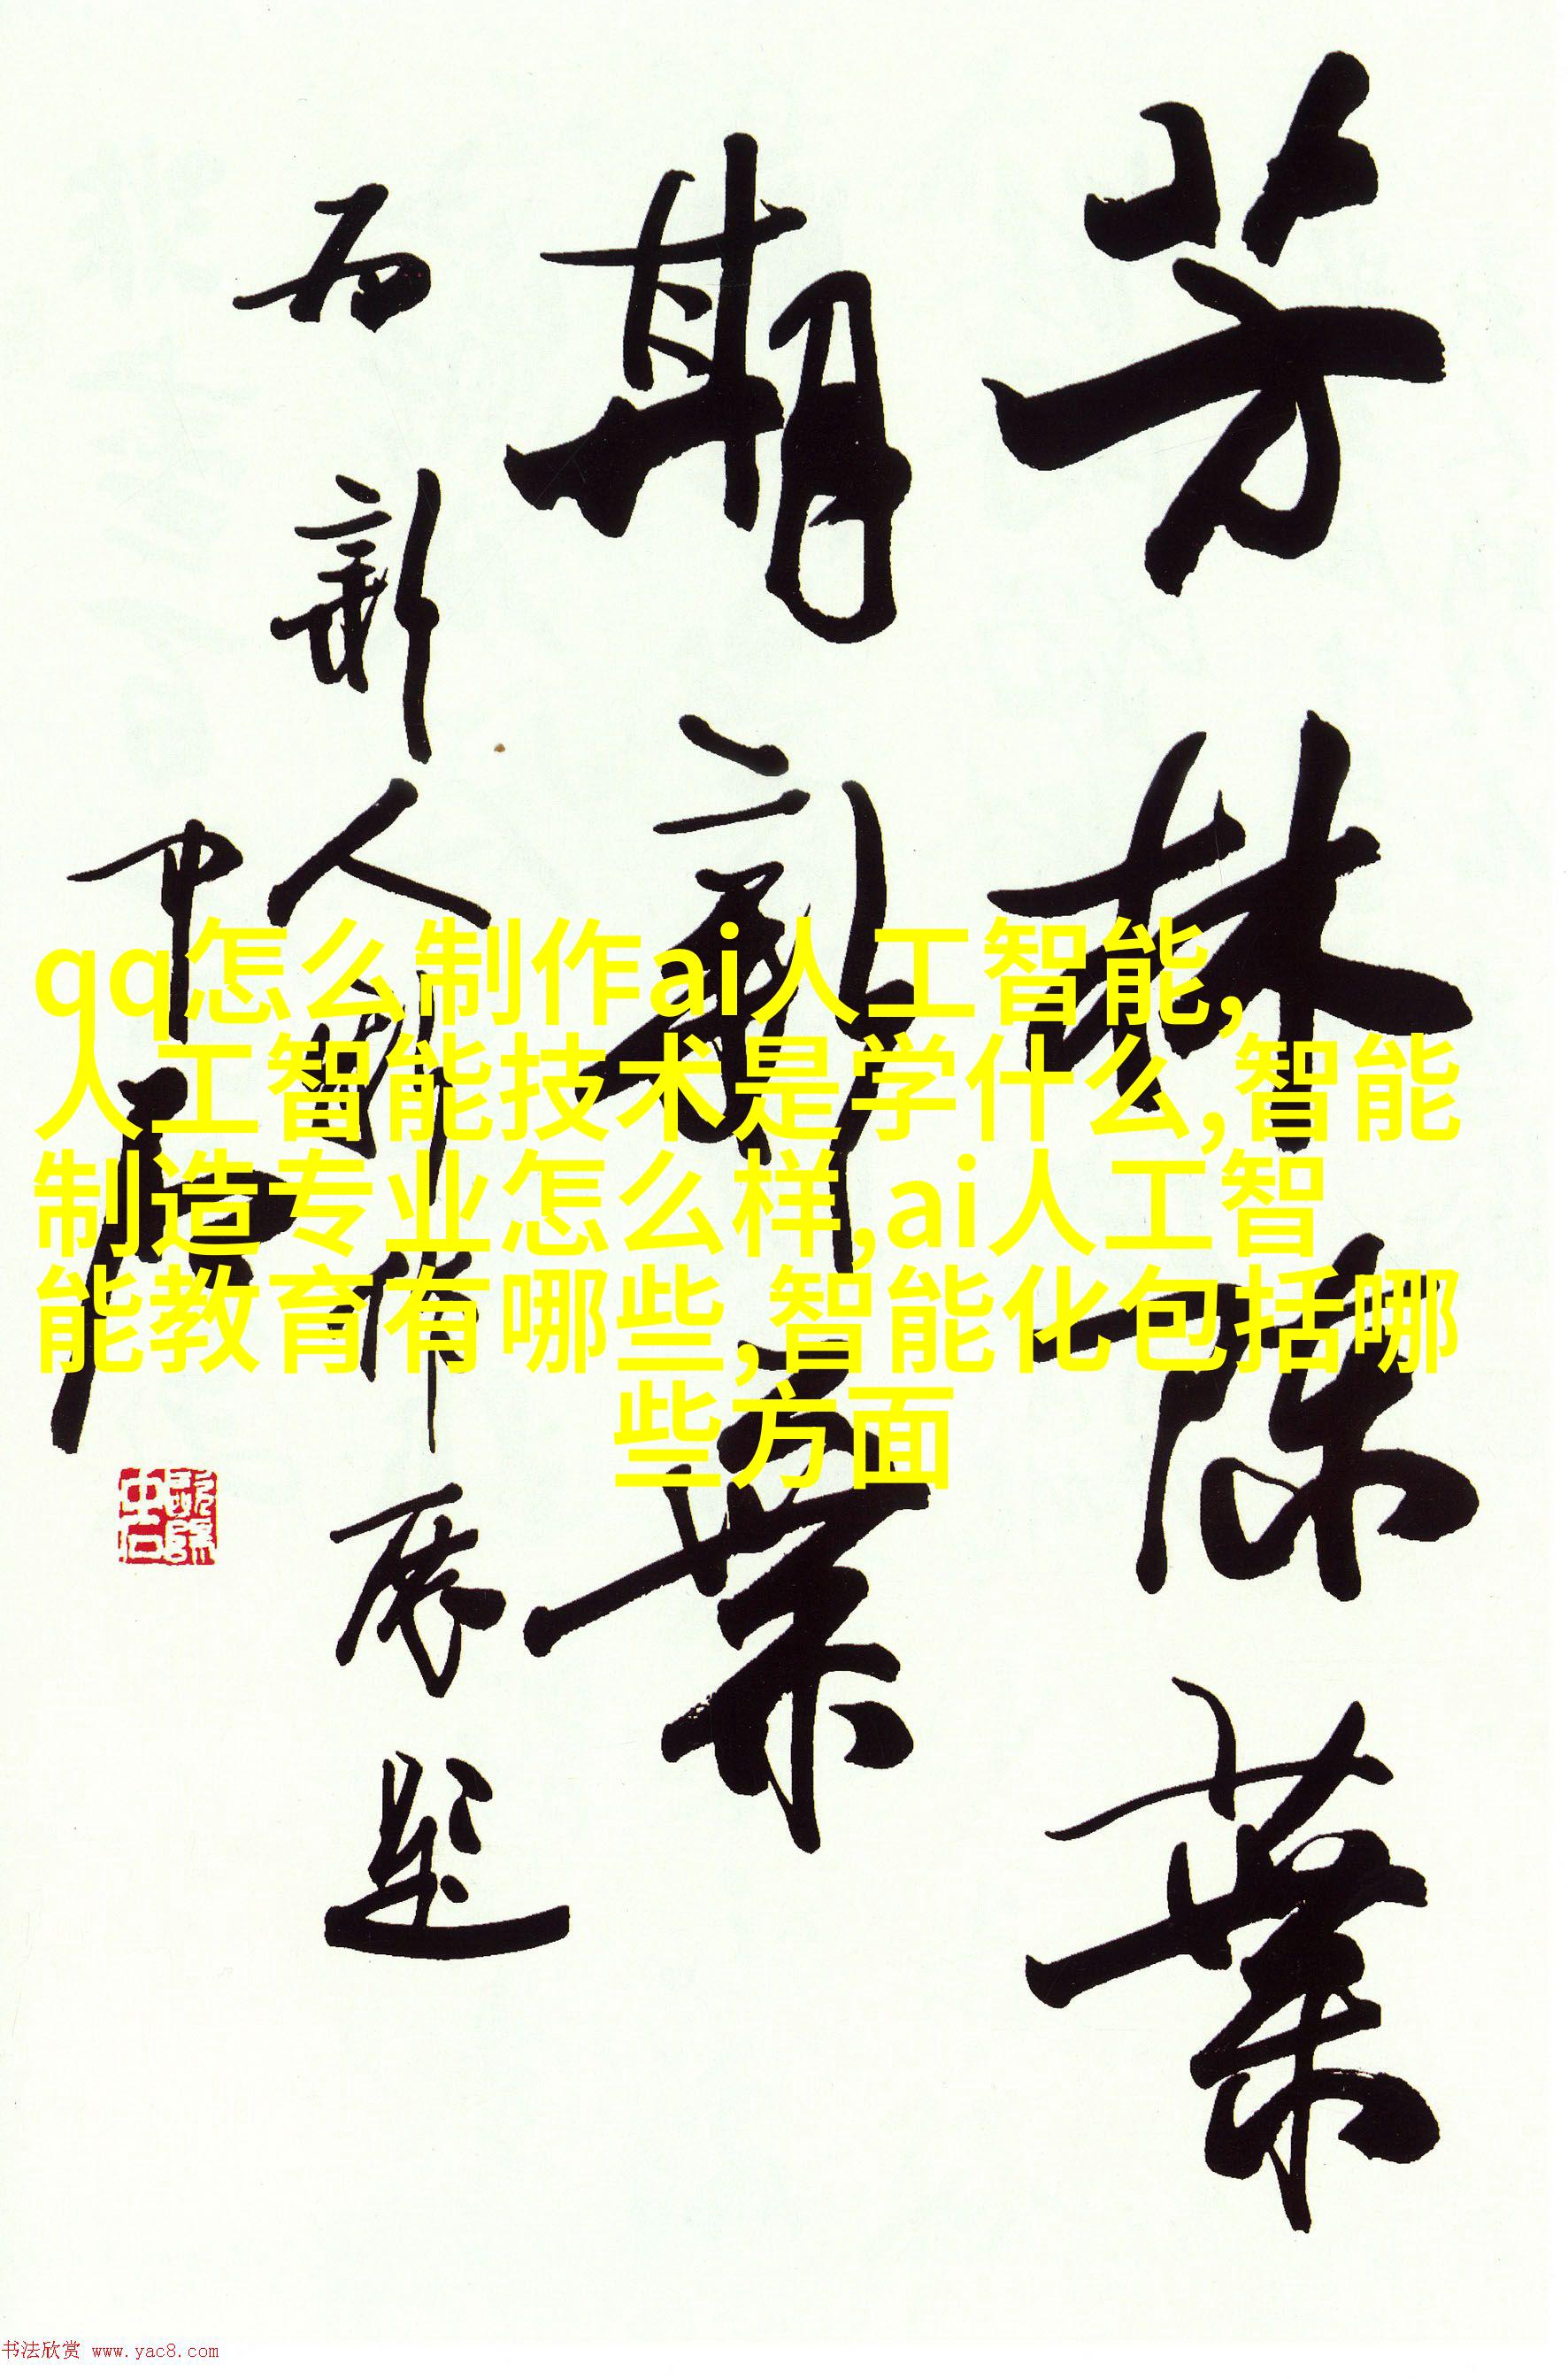 芳林陈葉
期新葉
为新人新作展题
中石
qq怎么制作ai人工智能,
人工智能技术是学什么,智能
制造专业怎么样,ai人工智
能教育有哪些,智能化包括哪
些方面
书法欣赏 www.yac8.com